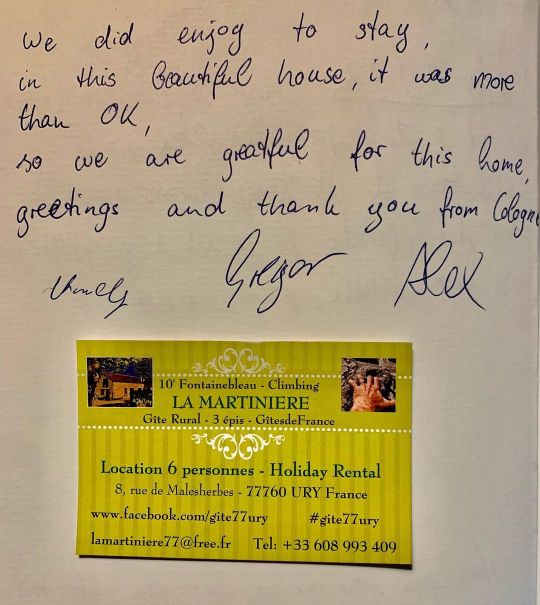 We did enjoy to stay,
in this Beautiful house, it was more
than OK,
so we are greatful for this home,
greetings and thank you from Cologne
Gregor Alex
10' Fontainebleau - Climbing
LA MARTINIERE
Gîte Rural - 3 épis - GîtesdeFrance
Location 6 personnes - Holiday Rental
8, rue de Malesherbes - 77760 URY France
www.facebook.com/gite77ury #gite77ury
lamartiniere77@free.fr Tel: +33 608 993 409